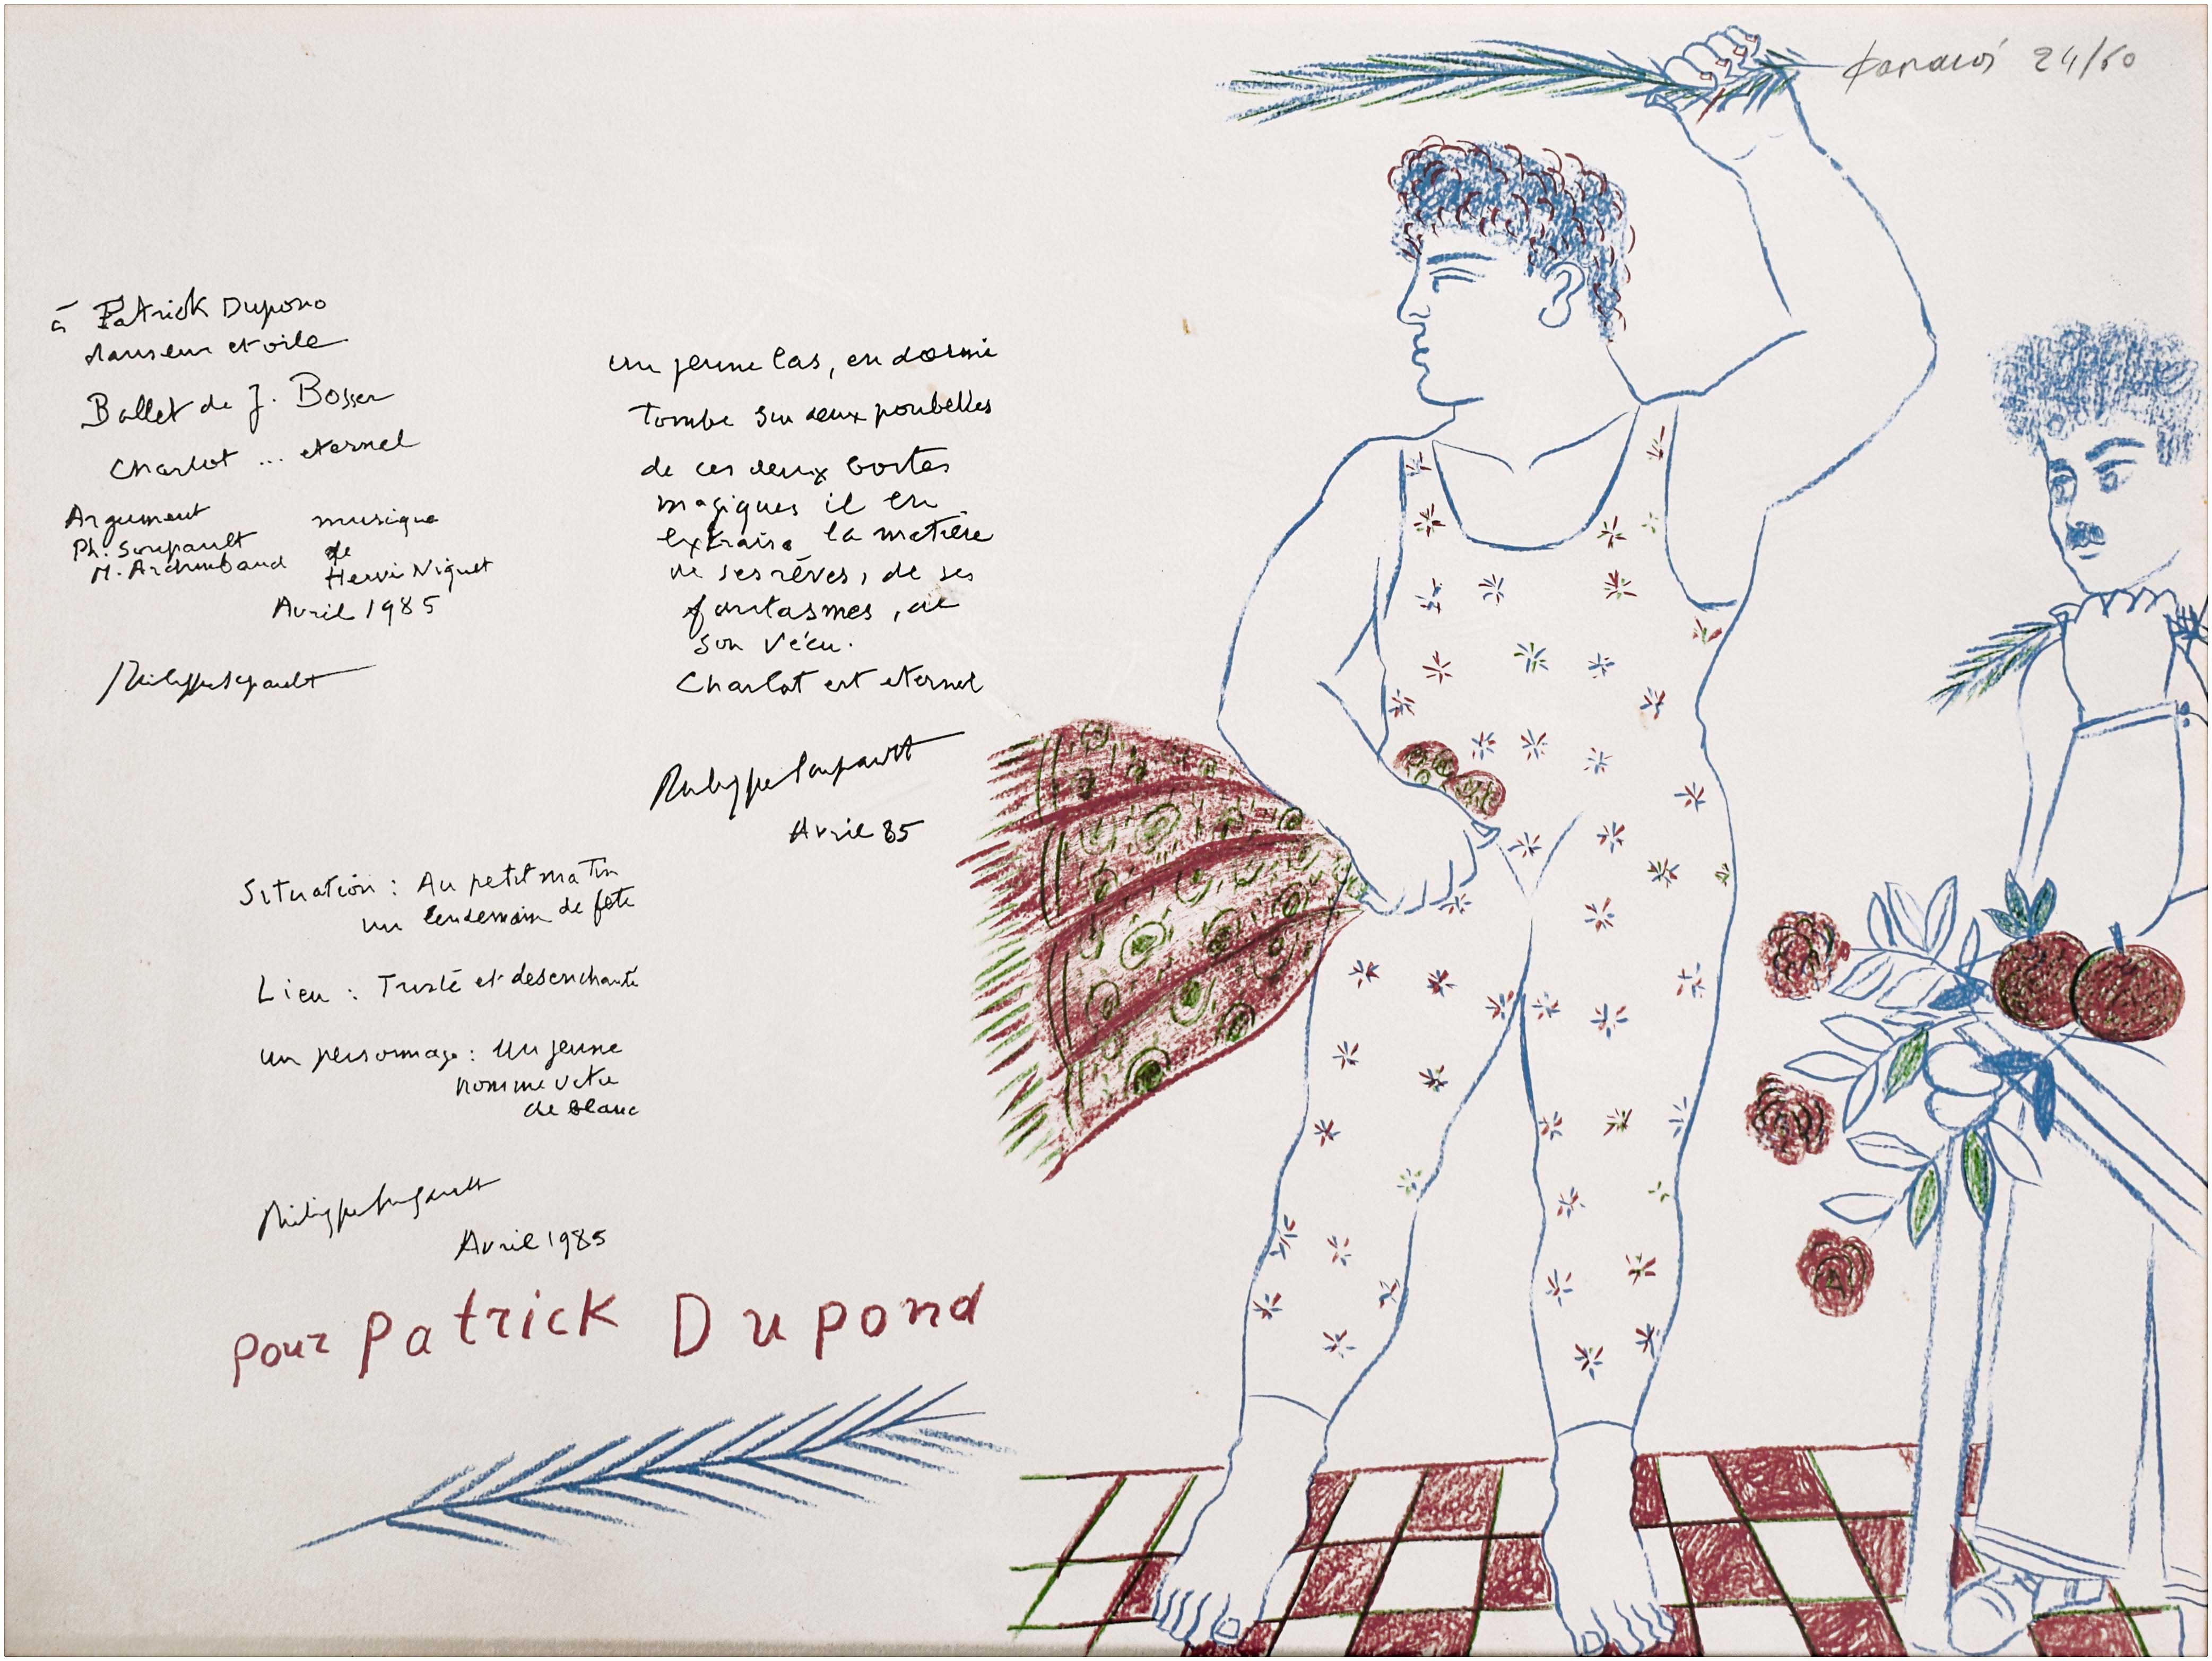 à Patrick Dupond
danseur etoile
Ballet de J. Bosser
Charlot ... eternel
Argument
Ph. Soupault
M. Archimbaud
musique
de
Hervé Niquet
Avril 1985
Philippe Soupault
un jeune las, endormi
Tombe sur deux poubelles
de ces deux boites
magiques il en
extraira la matière
de ses rêves, de ses
fantasmes, de
son vécu.
Charlot est eternel
Philippe Soupault
Avril 85
Situation : Au petit matin
un lendemain de fete
Lieu : Triste et desenchanté
un personnage : Un jeune
homme vetu
de blanc
Philippe Soupault
Avril 1985
pour Patrick Dupond
24/60